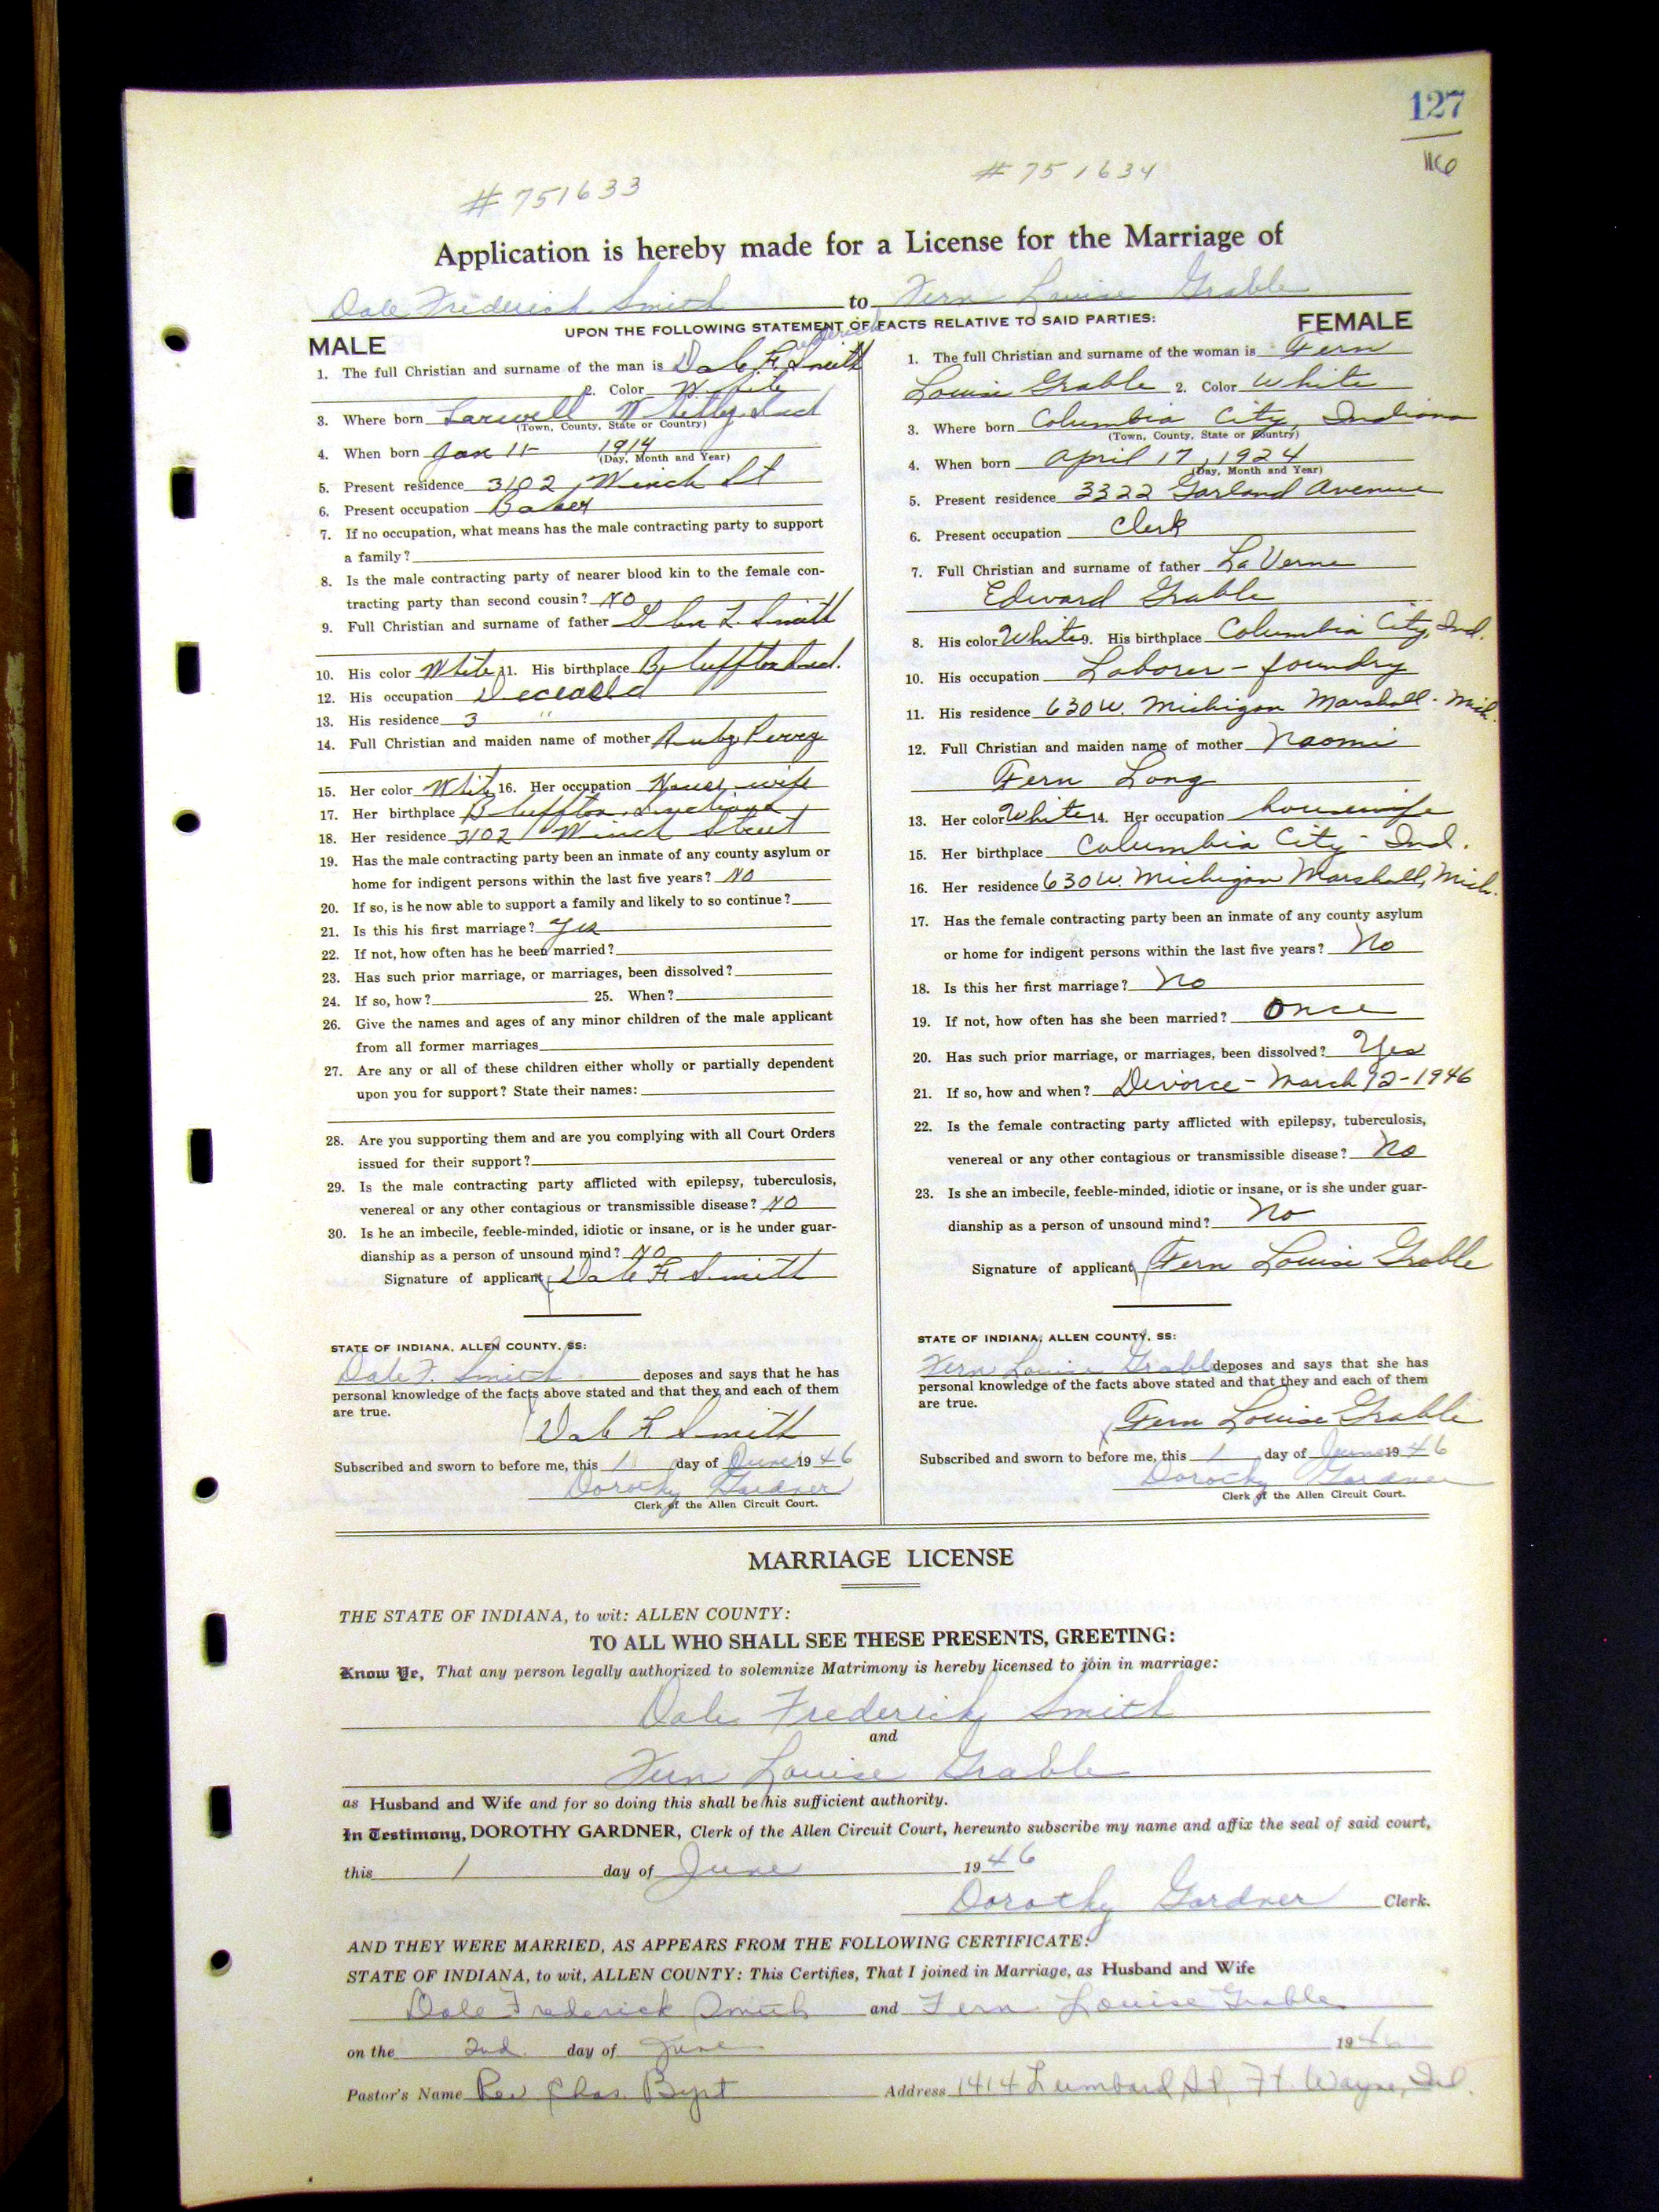 127
116
# 751633
# 751634
Application is hereby made for a License for the Marriage of
Dale Frederick Smith to Fern Louise Grable
UPON THE FOLLOWING STATEMENT OF FACTS RELATIVE TO SAID PARTIES:
MALE
1. The full Christian and surname of the man is Dale F. Smith
ederick
2. Color White
3. Where born Larwell Whitley Ind
(Town, County, State or Country)
4. When born Jan 11 1914
(Day, Month and Year)
5. Present residence 3102 Winch St
6. Present occupation Baker
7. If no occupation, what means has the male contracting party to support
a family?
8. Is the male contracting party of nearer blood kin to the female con-
tracting party than second cousin? NO
9. Full Christian and surname of father Smith
10. His color White 11. His birthplace Bluffton Ind.
12. His occupation Deceased
13. His residence 3 "
14. Full Christian and maiden name of mother Ruby
15. Her color White 16. Her occupation House wife
17. Her birthplace Bluffton, Indiana
18. Her residence 3102 Winch Street
19. Has the male contracting party been an inmate of any county asylum or
home for indigent persons within the last five years? NO
20. If so, is he now able to support a family and likely to so continue?
21. Is this his first marriage? Yes
22. If not, how often has he been married?
23. Has such prior marriage, or marriages, been dissolved?
24. If so, how? 25. When?
26. Give the names and ages of any minor children of the male applicant
from all former marriages
27. Are any or all of these children either wholly or partially dependent
upon you for support? State their names:
28. Are you supporting them and are you complying with all Court Orders
issued for their support?
29. Is the male contracting party afflicted with epilepsy, tuberculosis,
venereal or any other contagious or transmissible disease? NO
30. Is he an imbecile, feeble-minded, idiotic or insane, or is he under guar-
dianship as a person of unsound mind? NO
Signature of applicant Dale F Smith
STATE OF INDIANA, ALLEN COUNTY, SS:
Dale F. Smith deposes and says that he has
personal knowledge of the facts above stated and that they and each of them
are true.
Dale F Smith
Subscribed and sworn to before me, this 1 day of June 19 46
Dorothy Gardner
Clerk of the Allen Circuit Court.
FEMALE
1. The full Christian and surname of the woman is Fern
Louise Grable 2. Color White
3. Where born Columbia City, Indiana
(Town, County, State or Country)
4. When born April 17, 1924
(Day, Month and Year)
5. Present residence 3322 Garland Avenue
6. Present occupation Clerk
7. Full Christian and surname of father La Verne
Edward Grable
8. His color White 9. His birthplace Columbia City, Ind.
10. His occupation Laborer - foundry
11. His residence 630 W. Michigan Marshall - Mich.
12. Full Christian and maiden name of mother Naomi
Fern Long
13. Her color White 14. Her occupation housewife
15. Her birthplace Columbia City - Ind.
16. Her residence 630 W. Michigan Marshall, Mich.
17. Has the female contracting party been an inmate of any county asylum
or home for indigent persons within the last five years? No
18. Is this her first marriage? No
19. If not, how often has she been married? Once
20. Has such prior marriage, or marriages, been dissolved? Yes
21. If so, how and when? Divorce - March 12 - 1946
22. Is the female contracting party afflicted with epilepsy, tuberculosis,
venereal or any other contagious or transmissible disease? No
23. Is she an imbecile, feeble-minded, idiotic or insane, or is she under guar-
dianship as a person of unsound mind? No
Signature of applicant Fern Louise Grable
STATE OF INDIANA, ALLEN COUNTY, SS:
Fern Louise Grable deposes and says that she has
personal knowledge of the facts above stated and that they and each of them
are true.
Fern Louise Grable
Subscribed and sworn to before me, this 1 day of June 19 46
Dorothy Gardner
Clerk of the Allen Circuit Court.
MARRIAGE LICENSE
THE STATE OF INDIANA, to wit: ALLEN COUNTY:
TO ALL WHO SHALL SEE THESE PRESENTS, GREETING:
Know Ye, That any person legally authorized to solemnize Matrimony is hereby licensed to join in marriage:
Dale Frederick Smith
and
Fern Louise Grable
as Husband and Wife and for so doing this shall be his sufficient authority.
In Testimony, DOROTHY GARDNER, Clerk of the Allen Circuit Court, hereunto subscribe my name and affix the seal of said court,
this 1 day of June 19 46
Dorothy Gardner Clerk.
AND THEY WERE MARRIED, AS APPEARS FROM THE FOLLOWING CERTIFICATE:
STATE OF INDIANA, to wit, ALLEN COUNTY: This Certifies, That I joined in Marriage, as Husband and Wife
Dale Frederick Smith and Fern Louise Grable
on the 2nd day of June 19 46
Pastor's Name Rev Chas. Byrt Address 1414 Lumbard St, Ft. Wayne, Ind.